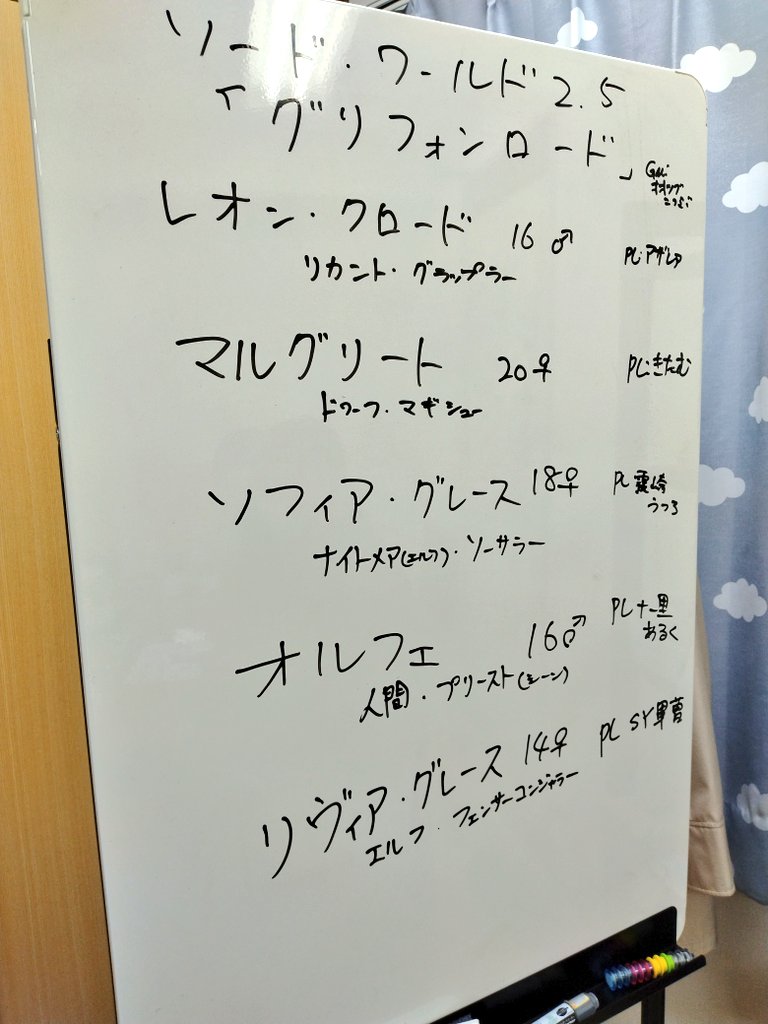 ソード・ワールド2.5
「グリフォンロード」
レオン・クロード 16♂
リカント・グラップラー
マルグリート 20♀ PL:きたむ
ドワーフ・マギシュー
ソフィア・グレース 18♀ PL
うつろ
ナイトメア(エルフ)・ソーサラー
オルフェ 16♂ PL 十一里
あるく
人間・プリースト(シーン)
リヴィア・グレース 14♀ PL SY軍曹
エルフ・フェンサーコンジャラー